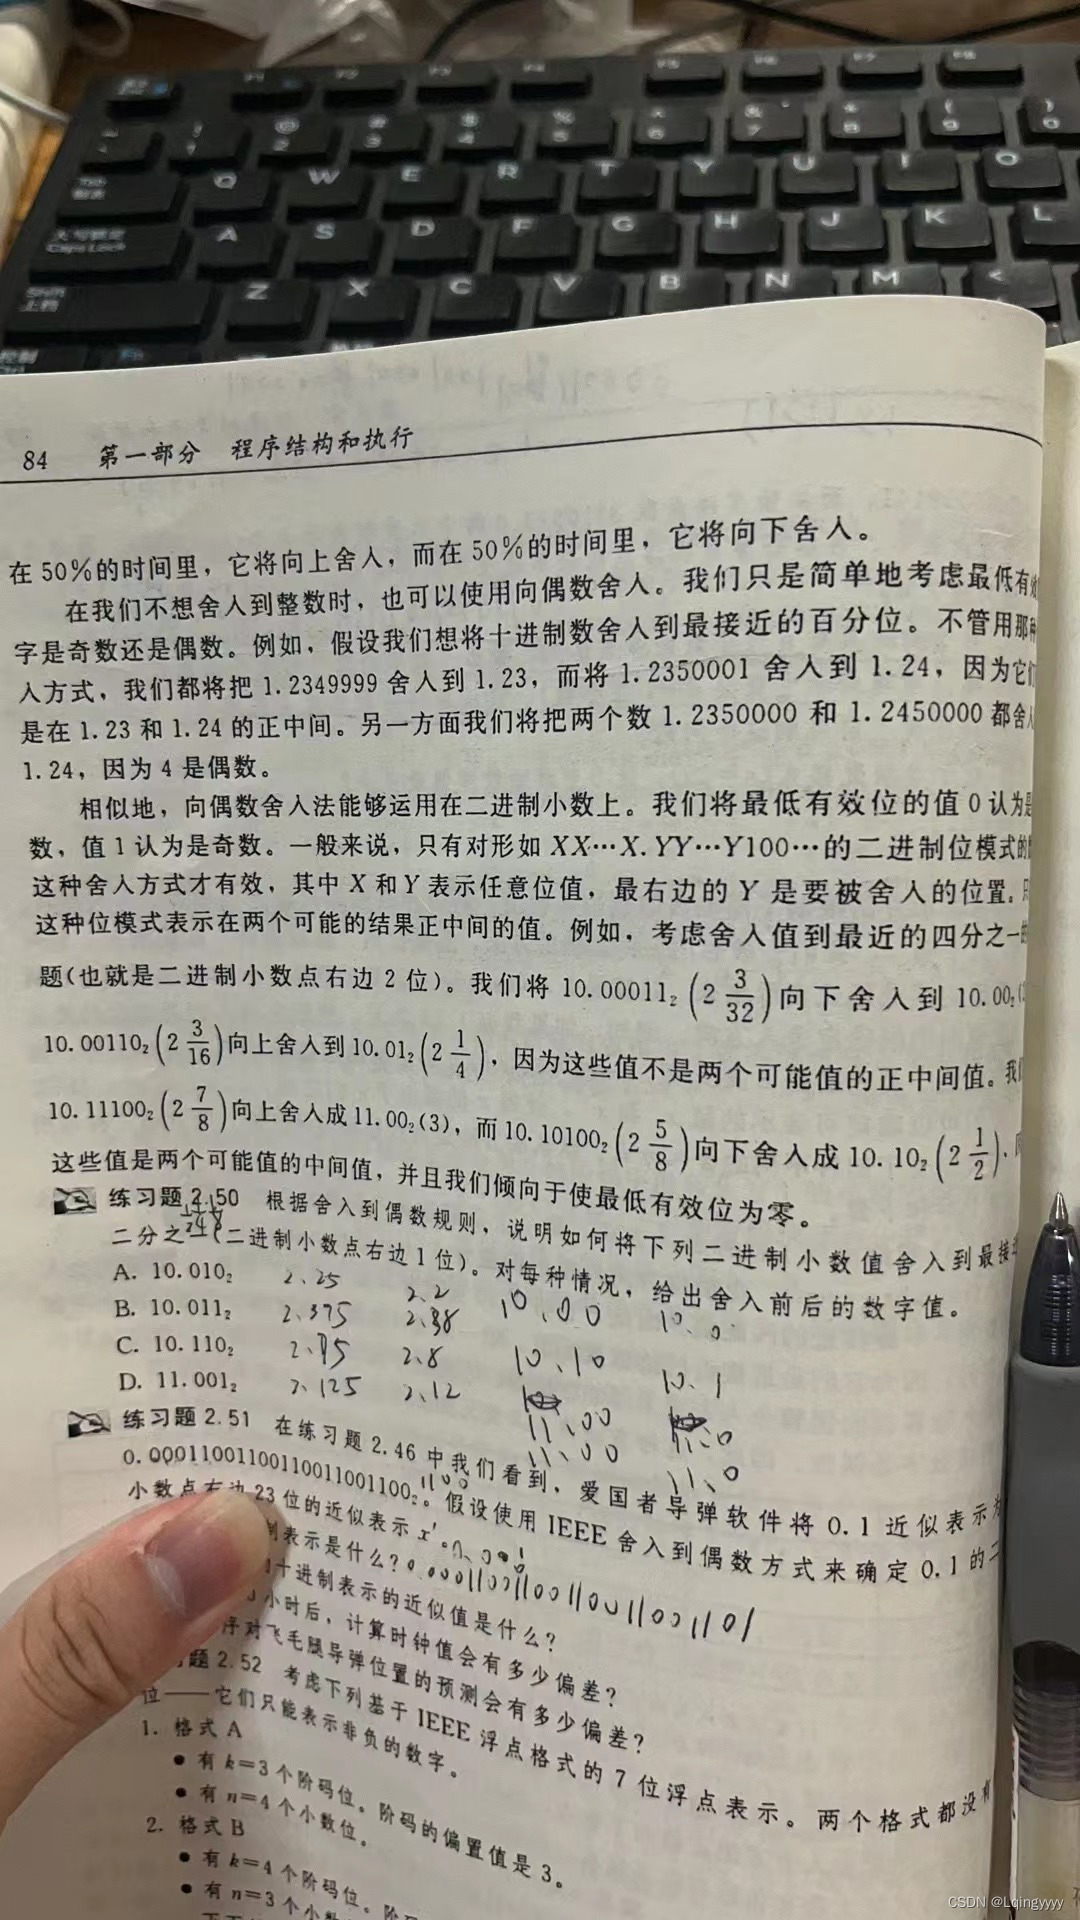 F1 F2 F3 F4 F5 F6 F7 F8
! 1 @ 2 # 3 $ 4 % 5 ^ 6 & 7 * 8 ( 9 ) 0
Tab Q W E R T Y U I O
大写锁定 Caps Lock A S D F G H J K L
Shift 上档 Z X C V B N M <
控制
84 第一部分 程序结构和执行
在50%的时间里，它将向上舍入，而在50%的时间里，它将向下舍入。
在我们不想舍入到整数时，也可以使用向偶数舍入。我们只是简单地考虑最低有效
字是奇数还是偶数。例如，假设我们想将十进制数舍入到最接近的百分位。不管用那种
入方式，我们都将把1.2349999舍入到1.23，而将1.2350001舍入到1.24，因为它们
是在1.23和1.24的正中间。另一方面我们将把两个数1.2350000和1.2450000都舍入
1.24，因为4是偶数。
相似地，向偶数舍入法能够运用在二进制小数上。我们将最低有效位的值0认为是
数，值1认为是奇数。一般来说，只有对形如XX…X.YY…Y100…的二进制位模式的
这种舍入方式才有效，其中X和Y表示任意位值，最右边的Y是要被舍入的位置。只
这种位模式表示在两个可能的结果正中间的值。例如，考虑舍入值到最近的四分之一的
题(也就是二进制小数点右边2位)。我们将10.00011₂(2 3/32)向下舍入到10.00₂(
10.00110₂(2 3/16)向上舍入到10.01₂(2 1/4)，因为这些值不是两个可能值的正中间值。我们
10.11100₂(2 7/8)向上舍入成11.00₂(3)，而10.10100₂(2 5/8)向下舍入成10.10₂(2 1/2)，
这些值是两个可能值的中间值，并且我们倾向于使最低有效位为零。
练习题2.50 根据舍入到偶数规则，说明如何将下列二进制小数值舍入到最接近
二分之一(二进制小数点右边1位)。对每种情况，给出舍入前后的数字值。
A. 10.010₂ 2.25 2.2 10.00 10.0
B. 10.011₂ 2.375 2.38 10.10 10.1
C. 10.110₂ 2.75 2.8 11.00 11.0
D. 11.001₂ 3.125 3.12 11.00 11.0
练习题2.51 在练习题2.46中我们看到，爱国者导弹软件将0.1近似表示为
0.00011001100110011001100₂。假设使用IEEE舍入到偶数方式来确定0.1的二
1100
小数点右边23位的近似表示x'。
制表示是什么？ 0.00011001100110011001101
十进制表示的近似值是什么？
小时后，计算时钟值会有多少偏差？
序对飞毛腿导弹位置的预测会有多少偏差？
题2.52 考虑下列基于IEEE浮点格式的7位浮点表示。两个格式都没有
位——它们只能表示非负的数字。
1. 格式A
● 有k=3个阶码位。阶码的偏置值是3。
● 有n=4个小数位。
2. 格式B
● 有k=4个阶码位。
● 有n=3个小数
CSDN @Lqingyyyy